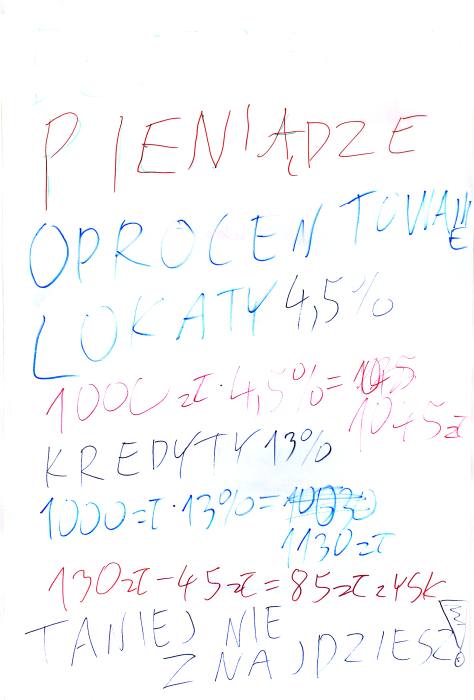 PIENIĄDZE
OPROCENTOWANIE
LOKATY 4,5%
1000 zł · 4,5% = 1045
1045 zł
KREDYTY 13%
1000 zł · 13% =
1130 zł
130 zł - 45 zł = 85 zł zysk
TANIEJ NIE
ZNAJDZIESZ!